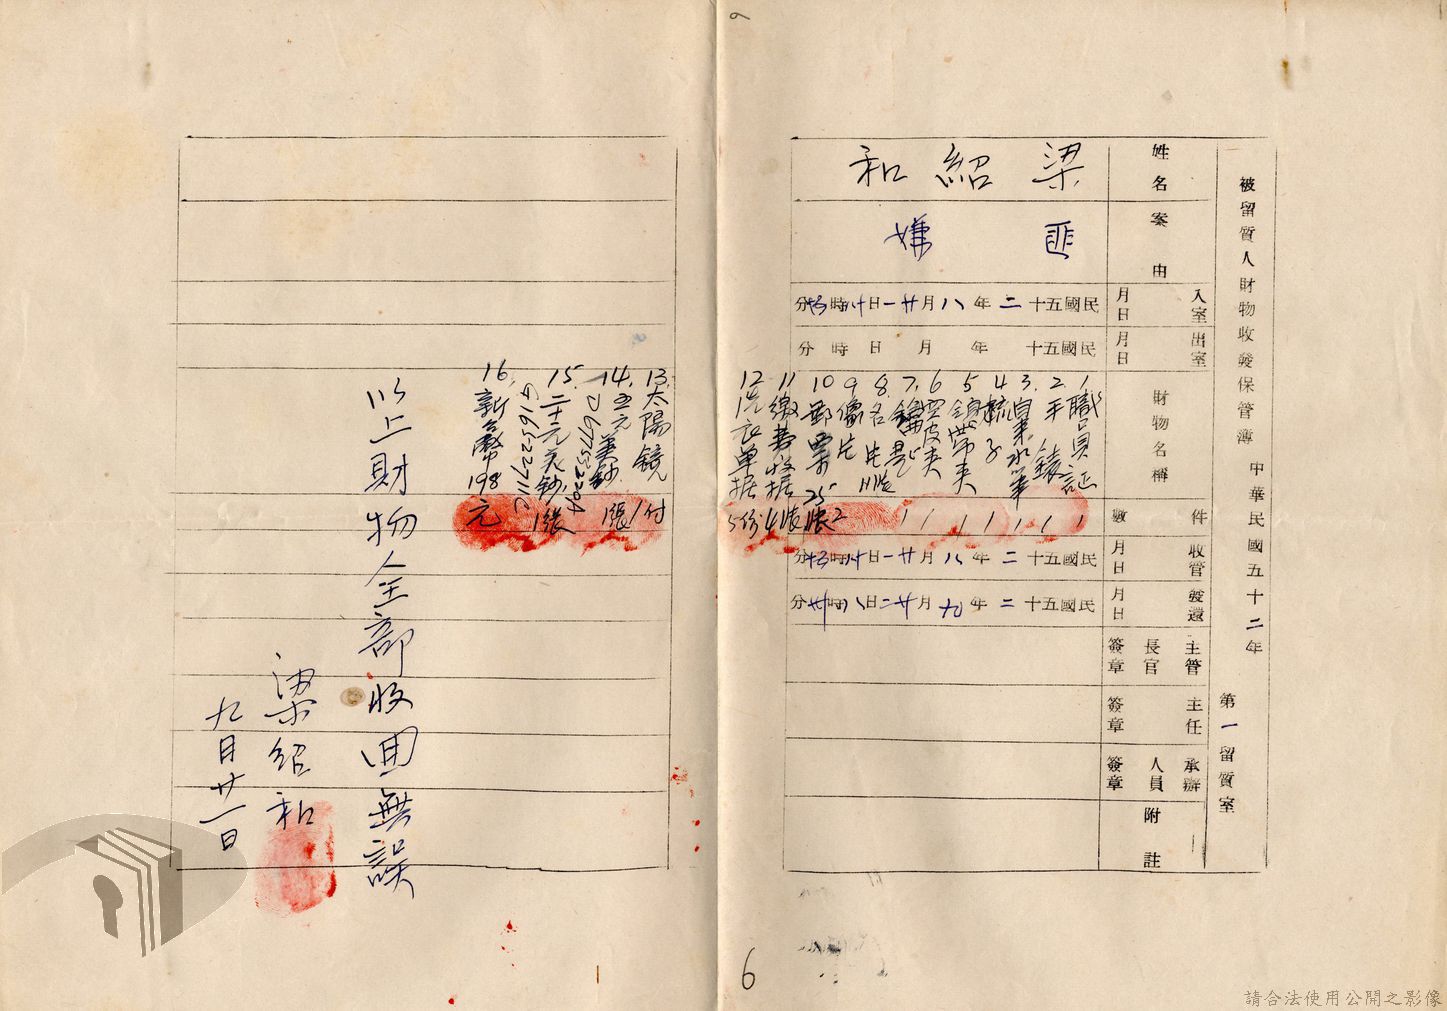 被留質人財物收發保管簿 中華民國五十二年
第一留質室
姓名 梁紹和
案由 匪嫌
入室月日 民國五十二年八月廿一日十八時十五分
出室月日 民國五十 年 月 日 時 分
財物名稱
件數
1 職員証 1
2. 手錶 1
3. 自來水筆 1
4 梳子 1
5 領帶夾 1
6 皮夾 1
7. 鑰匙 1
8. 名片
9 像片 2
10 郵票 25張
11 繳費收据 4張
12 洗衣單据 5份
13. 太陽鏡 1付
14. 五元美鈔 1張
15. 二十元美鈔 1張
16. 新台幣198元
收管月日 民國五十二年八月廿一日十八時十五分
發還月日 民國五十二年九月廿二日八時卅分
主管長官簽章
主任簽章
承辦人員簽章
附註
以上財物全部收回無誤
梁紹和
九月廿一日
6
請合法使用公開之影像